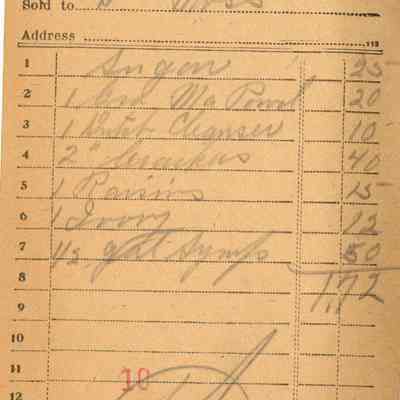 Sold to
Address
1 Sugar 25
2 1 Powd 20
3 1 Dutch Cleanser 10
4 2 " Crackers 40
5 1 Raisins 15
6 1 Ivory 12
7 1/2 gal Syrup 50
8 1.72
9
10
11
12